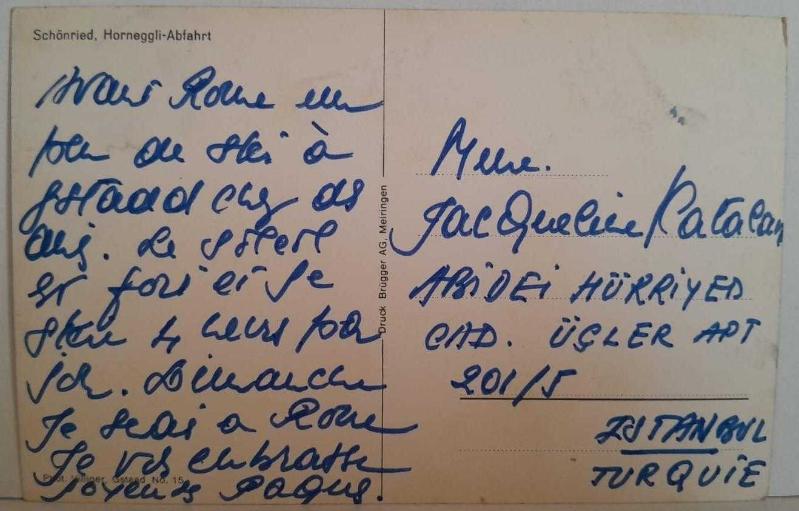 Schönried, Horneggli-Abfahrt
Avant Rome un
peu de ski à
gstaad chez des
amis. Le soleil
est fort et je
skie 4 heures par
jour. Dimanche
je serai a Rome
Je vs embrasse
Joyeuses Paques.
Phot. Gstaad No. 15
Druck Brügger AG, Meiringen
Mme.
Jacqueline Katalan
ABIDEI HÜRRIYED
CAD. ÜÇLER APT
201/5
ISTANBUL
TURQUIE